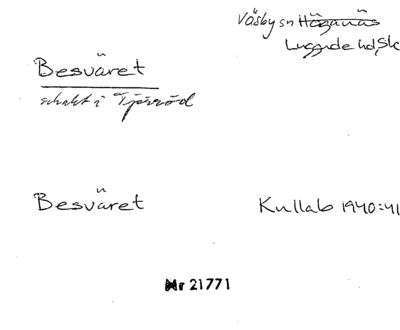 Väsby sn Höganäs
Luggude hd, Sk
Besväret
schakt i Tjörröd
Besväret Kullab 1940:41
Nr 21771